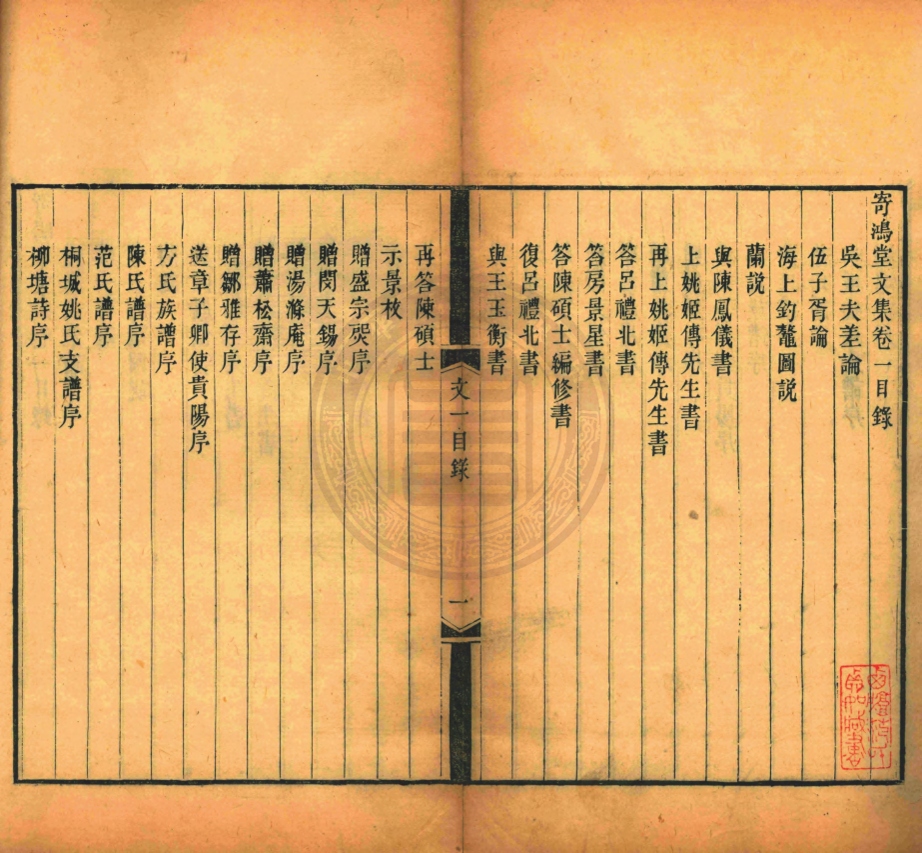 寄鴻堂文集卷一目錄
吳王夫差論
伍子胥論
海上釣鼇圖説
蘭説
與陳鳳儀書
上姚姬傳先生書
再上姚姬傳先生書
答呂禮北書
答房景星書
答陳碩士編修書
復呂禮北書
與王玉衡書
文一目錄
一
再答陳碩士
示景枚
贈盛宗爕序
贈閔天錫序
贈湯滌庵序
贈蕭松齋序
贈鄒雅存序
送章子卿使貴陽序
方氏族譜序
陳氏譜序
范氏譜序
桐城姚氏支譜序
柳塘詩序